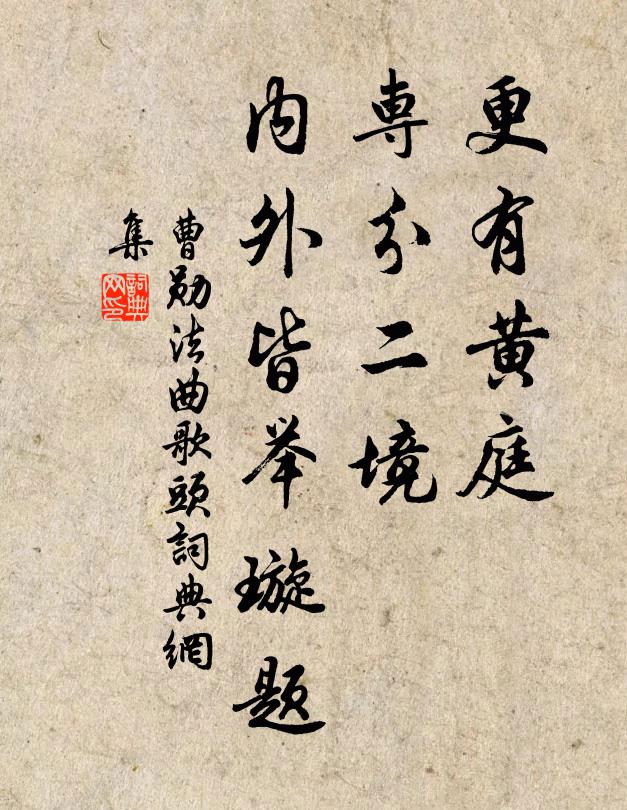 更有黄庭
専分二境
内外皆举璇题
曹勋法曲歌頭詞典網
集
詞典网印